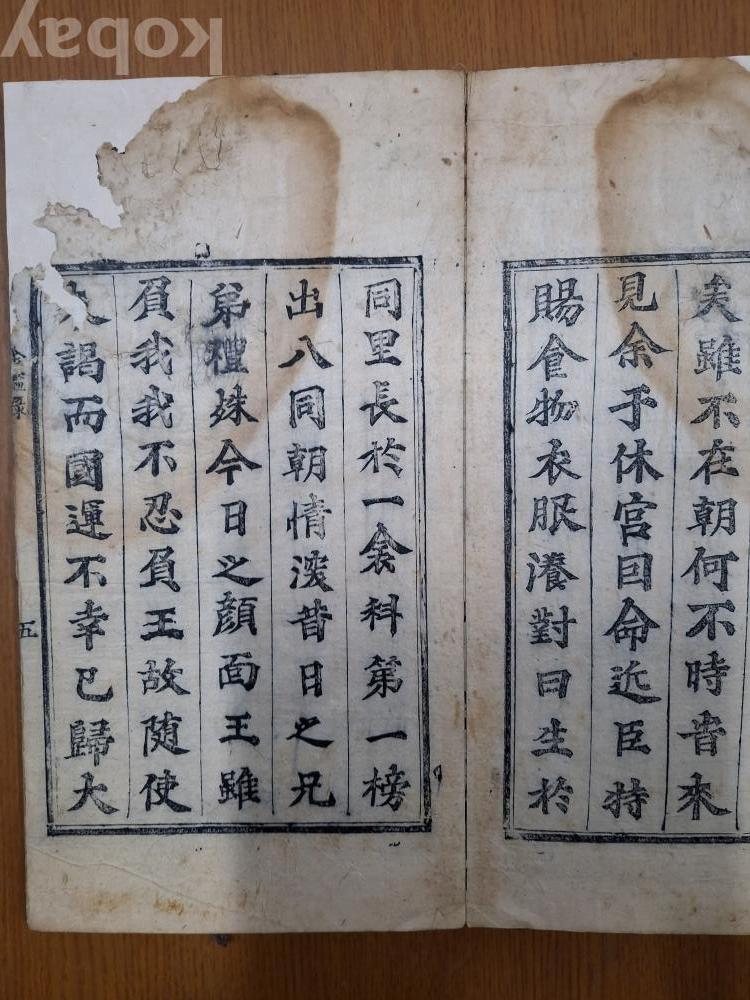 kobay
矣雖不在朝何不時皆來
見余于休宮回命近臣持
賜食物衣服瀁對曰生於
同里長於一衾科第一榜
出入同朝情深昔日之兄
弟禮殊今日之顔面王雖
負我我不忍負王故隨使
來謁而國運不幸已歸大
錄
五